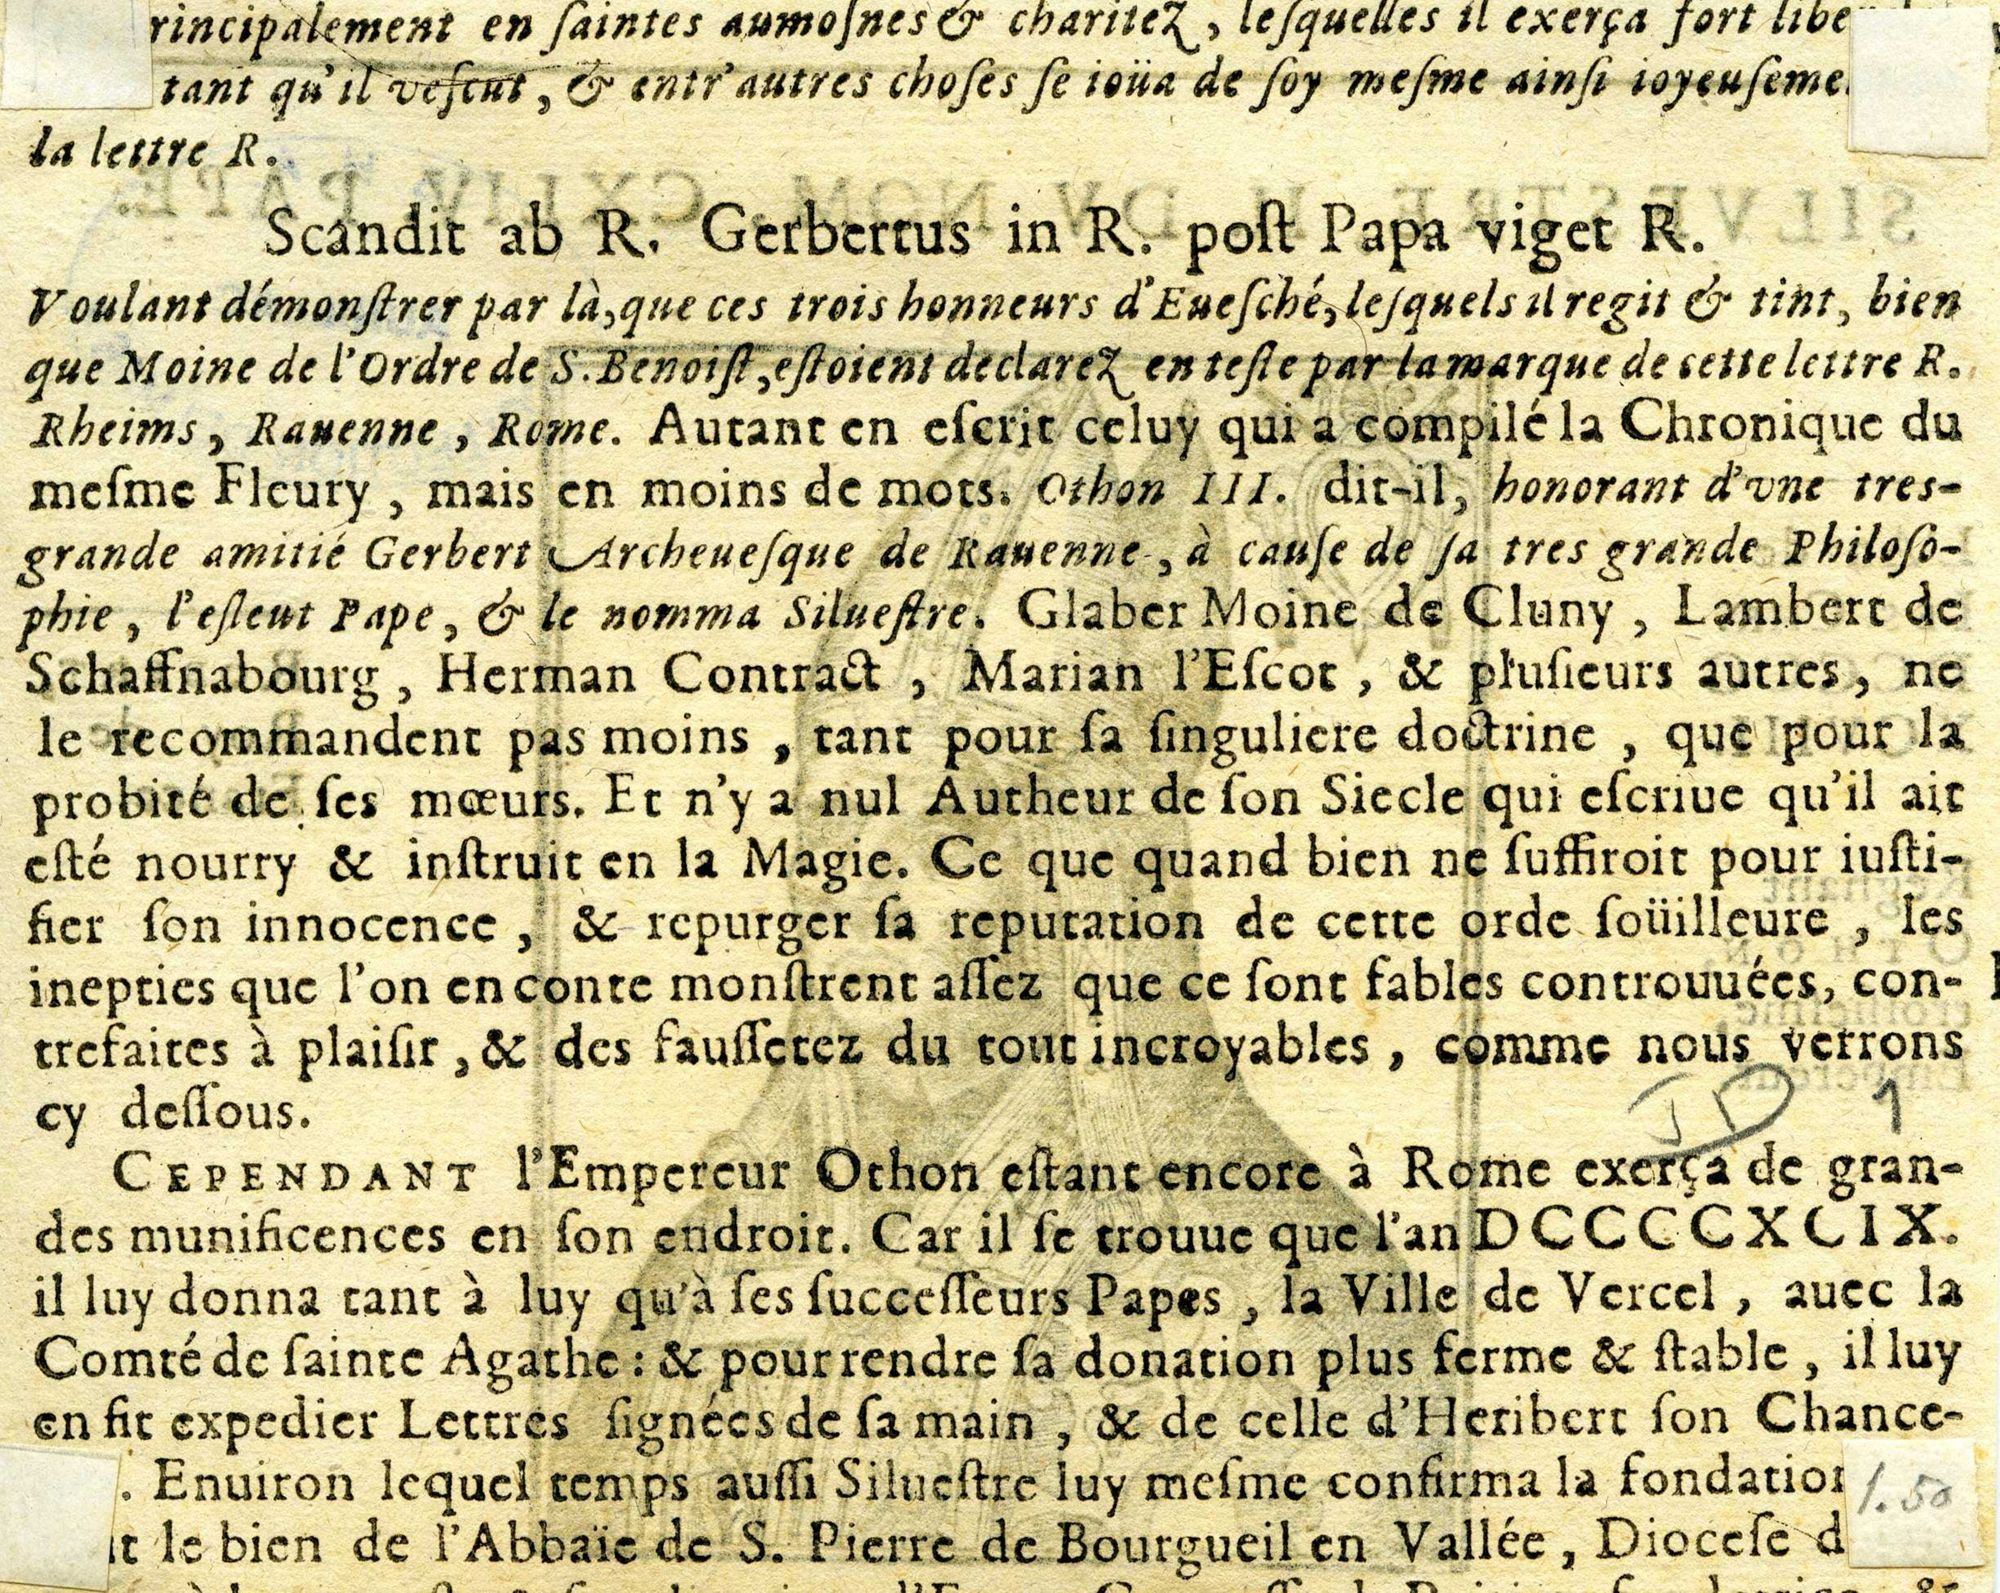 rincipalement en ſaintes aumoſnes & charitez, leſquelles il exerça fort libe
tant qu'il veſcut, & entr'autres choſes ſe ioüa de ſoy meſme ainſi ioyeuſeme
la lettre R.
SILVESTRE II. DV NOM, CXLIV. PAPE.
Scandit ab R. Gerbertus in R. poſt Papa viget R.
Voulant démonſtrer par là, que ces trois honneurs d'Eueſché, leſquels il regit & tint, bien
que Moine de l'Ordre de S. Benoiſt, eſtoient declarez en teſte par la marque de cette lettre R.
Rheims, Rauenne, Rome. Autant en eſcrit celuy qui a compilé la Chronique du
meſme Fleury, mais en moins de mots. Othon III. dit-il, honorant d'vne tres-
grande amitié Gerbert Archeueſque de Rauenne, à cauſe de ſa tres grande Philoſo-
phie, l'eſleut Pape, & le nomma Silueſtre. Glaber Moine de Cluny, Lambert de
Schaffnabourg, Herman Contract, Marian l'Eſcot, & pluſieurs autres, ne
le recommandent pas moins, tant pour ſa ſinguliere doctrine, que pour la
probité de ſes mœurs. Et n'y a nul Autheur de ſon Siecle qui eſcriue qu'il ait
eſté nourry & inſtruit en la Magie. Ce que quand bien ne ſuffiroit pour iuſti-
fier ſon innocence, & repurger ſa reputation de cette orde ſoüilleure, les
inepties que l'on en conte monſtrent aſſez que ce ſont fables controuuées, con-
trefaites à plaiſir, & des fauſſetez du tout incroyables, comme nous verrons
cy deſſous.
JD 1
CEPENDANT l'Empereur Othon eſtant encore à Rome exerça de gran-
des munificences en ſon endroit. Car il ſe trouue que l'an DCCCCXCIX.
il luy donna tant à luy qu'à ſes ſucceſſeurs Papes, la Ville de Vercel, auec la
Comté de ſainte Agathe: & pour rendre ſa donation plus ferme & ſtable, il luy
en fit expedier Lettres ſignées de ſa main, & de celle d'Heribert ſon Chance-
. Enuiron lequel temps auſſi Silueſtre luy meſme confirma la fondation
1.50
t le bien de l'Abbaïe de S. Pierre de Bourgueil en Vallée, Dioceſe d